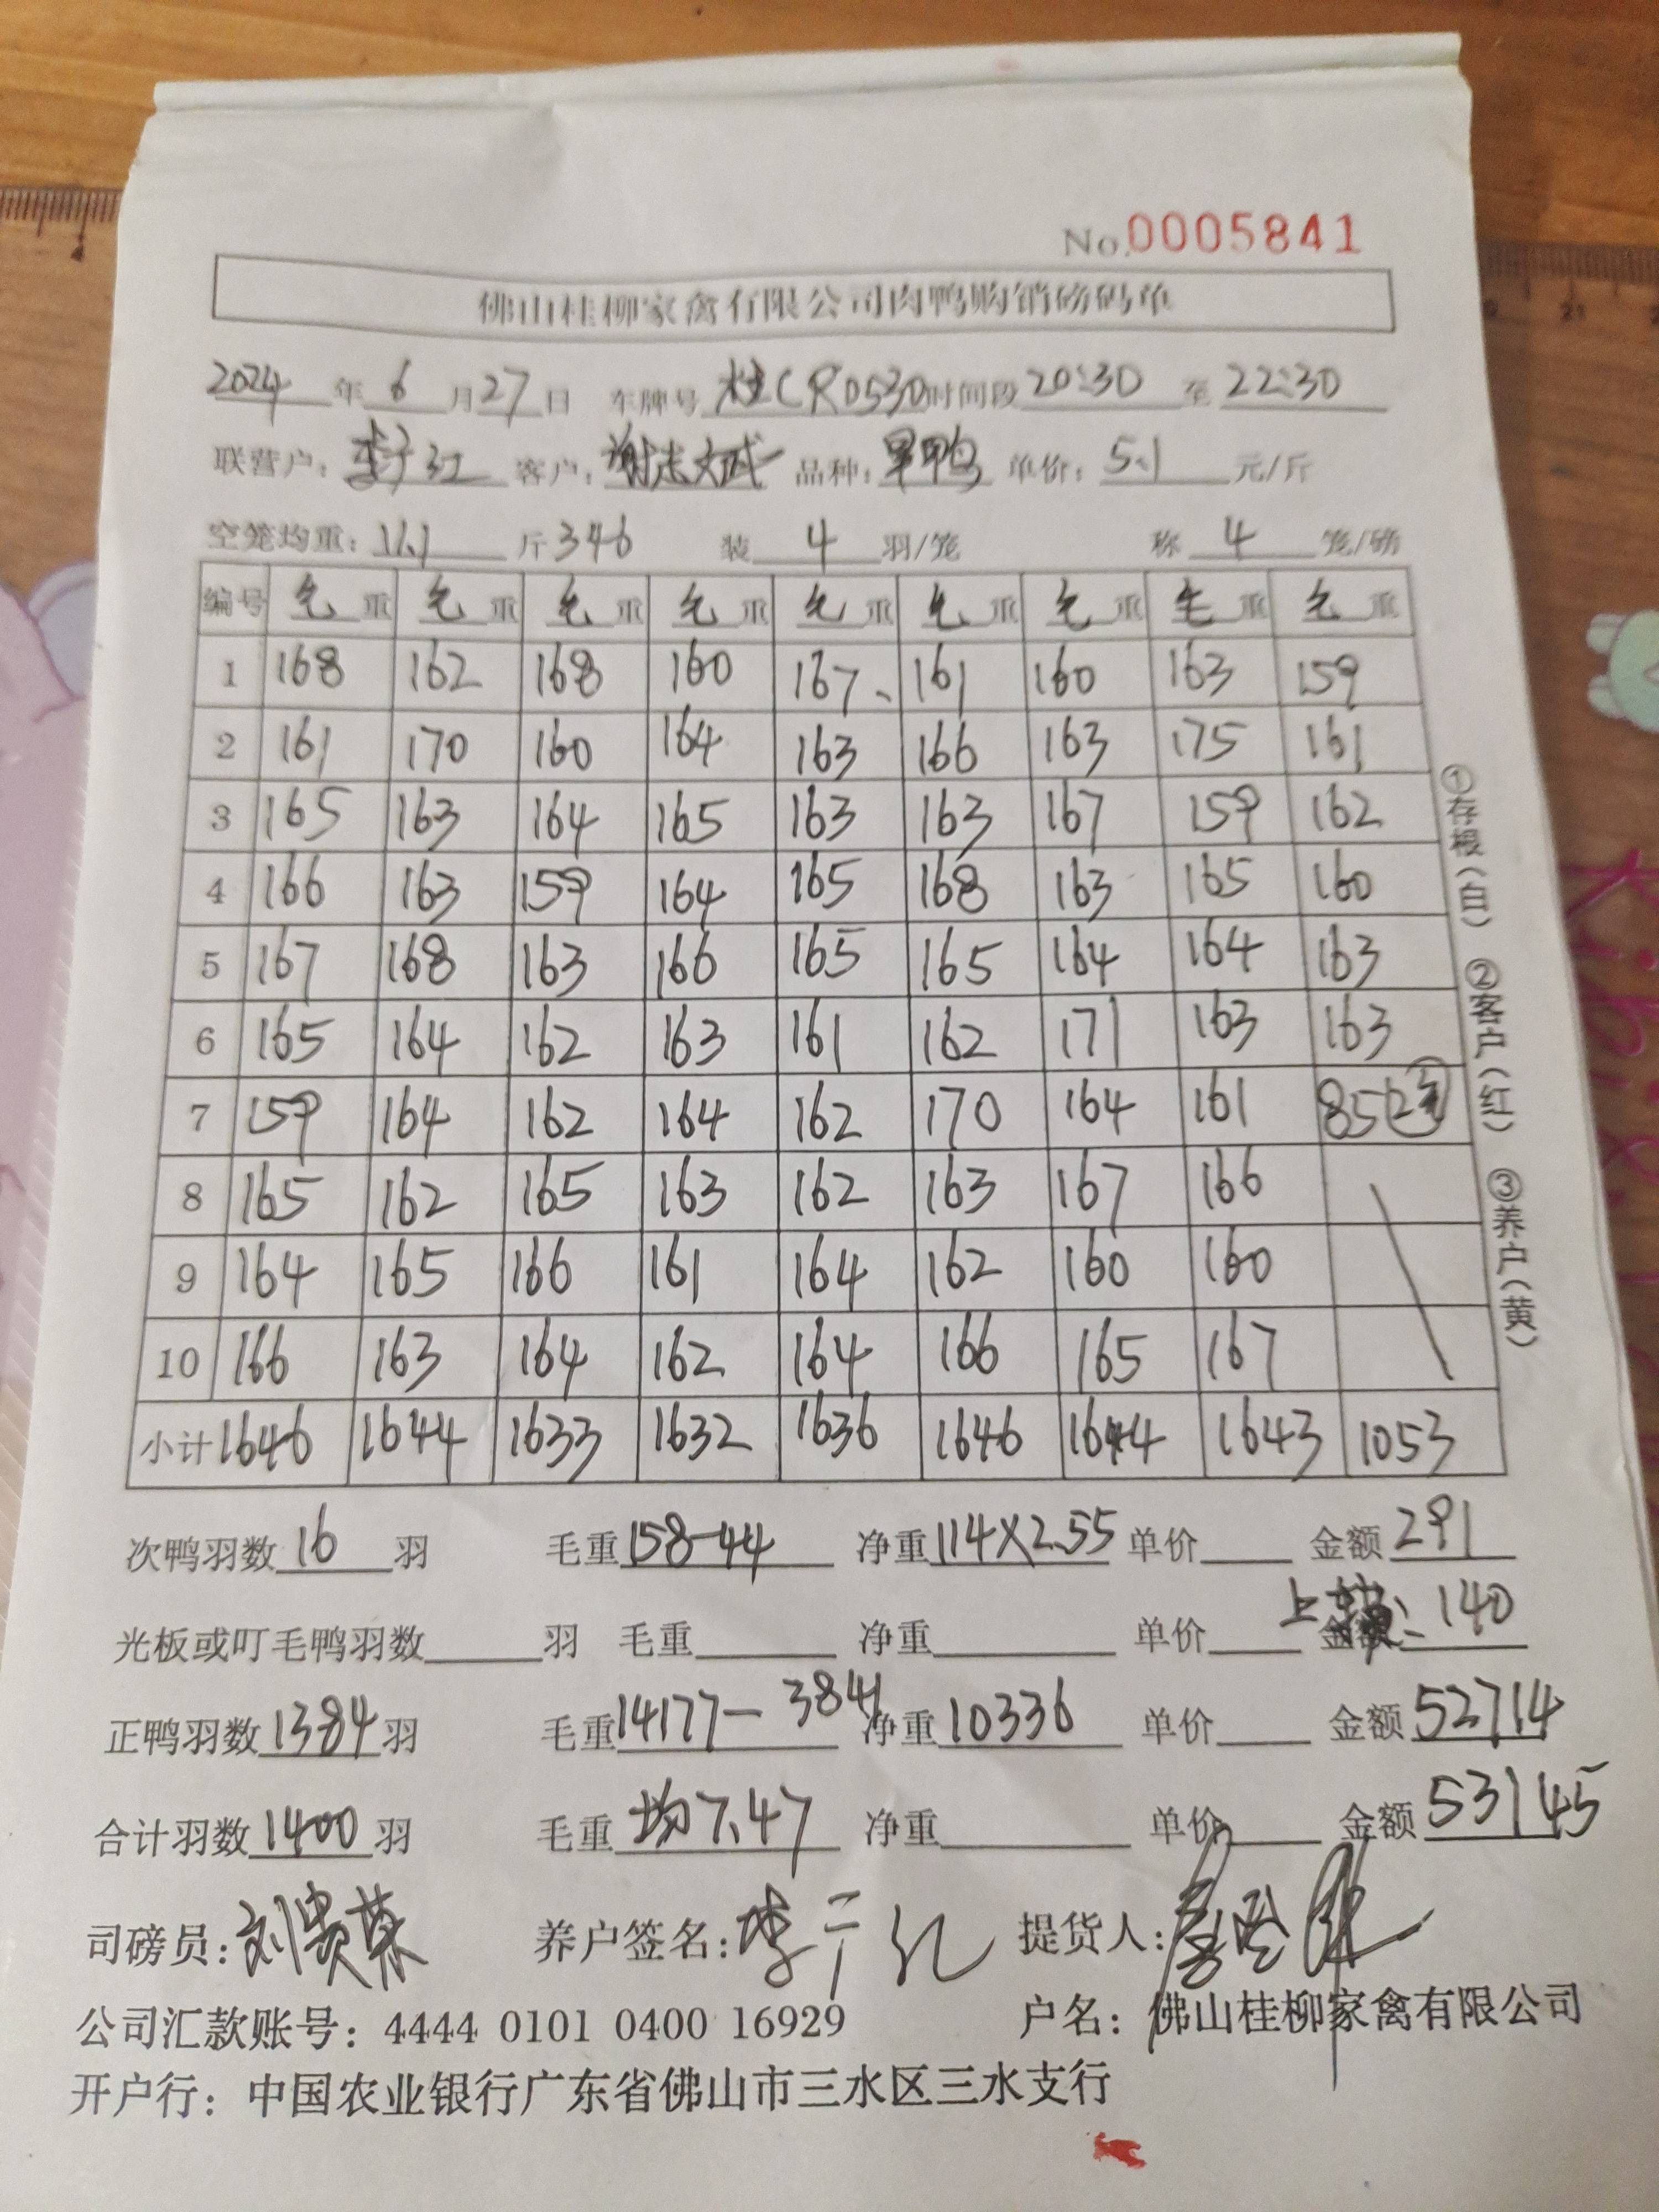 No.0005841
佛山桂柳家禽有限公司肉鸭购销磅码单
2024年6月27日 车牌号桂CR0530时间段20:30至22:30
联营户:李于红 客户:谢志斌 品种:旱鸭 单价:5.1元/斤
空笼均重:11.1斤346 装4羽/笼 称4笼/磅
编号 毛重 毛重 毛重 毛重 毛重 毛重 毛重 毛重 毛重
1 168 162 168 160 167、 161 160 163 159
2 161 170 160 164 163 166 163 175 161
3 165 163 164 165 163 163 167 159 162
4 166 163 159 164 165 168 163 165 160
5 167 168 163 166 165 165 164 164 163
6 165 164 162 163 161 162 171 163 163
7 159 164 162 164 162 170 164 161 85(2笼)
8 165 162 165 163 162 163 167 166
9 164 165 166 161 164 162 160 160
10 166 163 164 162 164 166 165 167
小计 1646 1644 1633 1632 1636 1646 1644 1643 1053
次鸭羽数16羽 毛重158-44 净重114X2.55 单价 金额291
光板或叮毛鸭羽数 羽 毛重 净重 单价 金额 上 140
正鸭羽数1384羽 毛重14177-3841 净重10336 单价 金额52714
合计羽数1400羽 毛重均7.47 净重 单价 金额53145
司磅员:刘贵荣 养户签名:李于红 提货人:
公司汇款账号: 4444 0101 0400 16929 户名: 佛山桂柳家禽有限公司
开户行: 中国农业银行广东省佛山市三水区三水支行
①存根(白) ②客户(红) ③养户(黄)